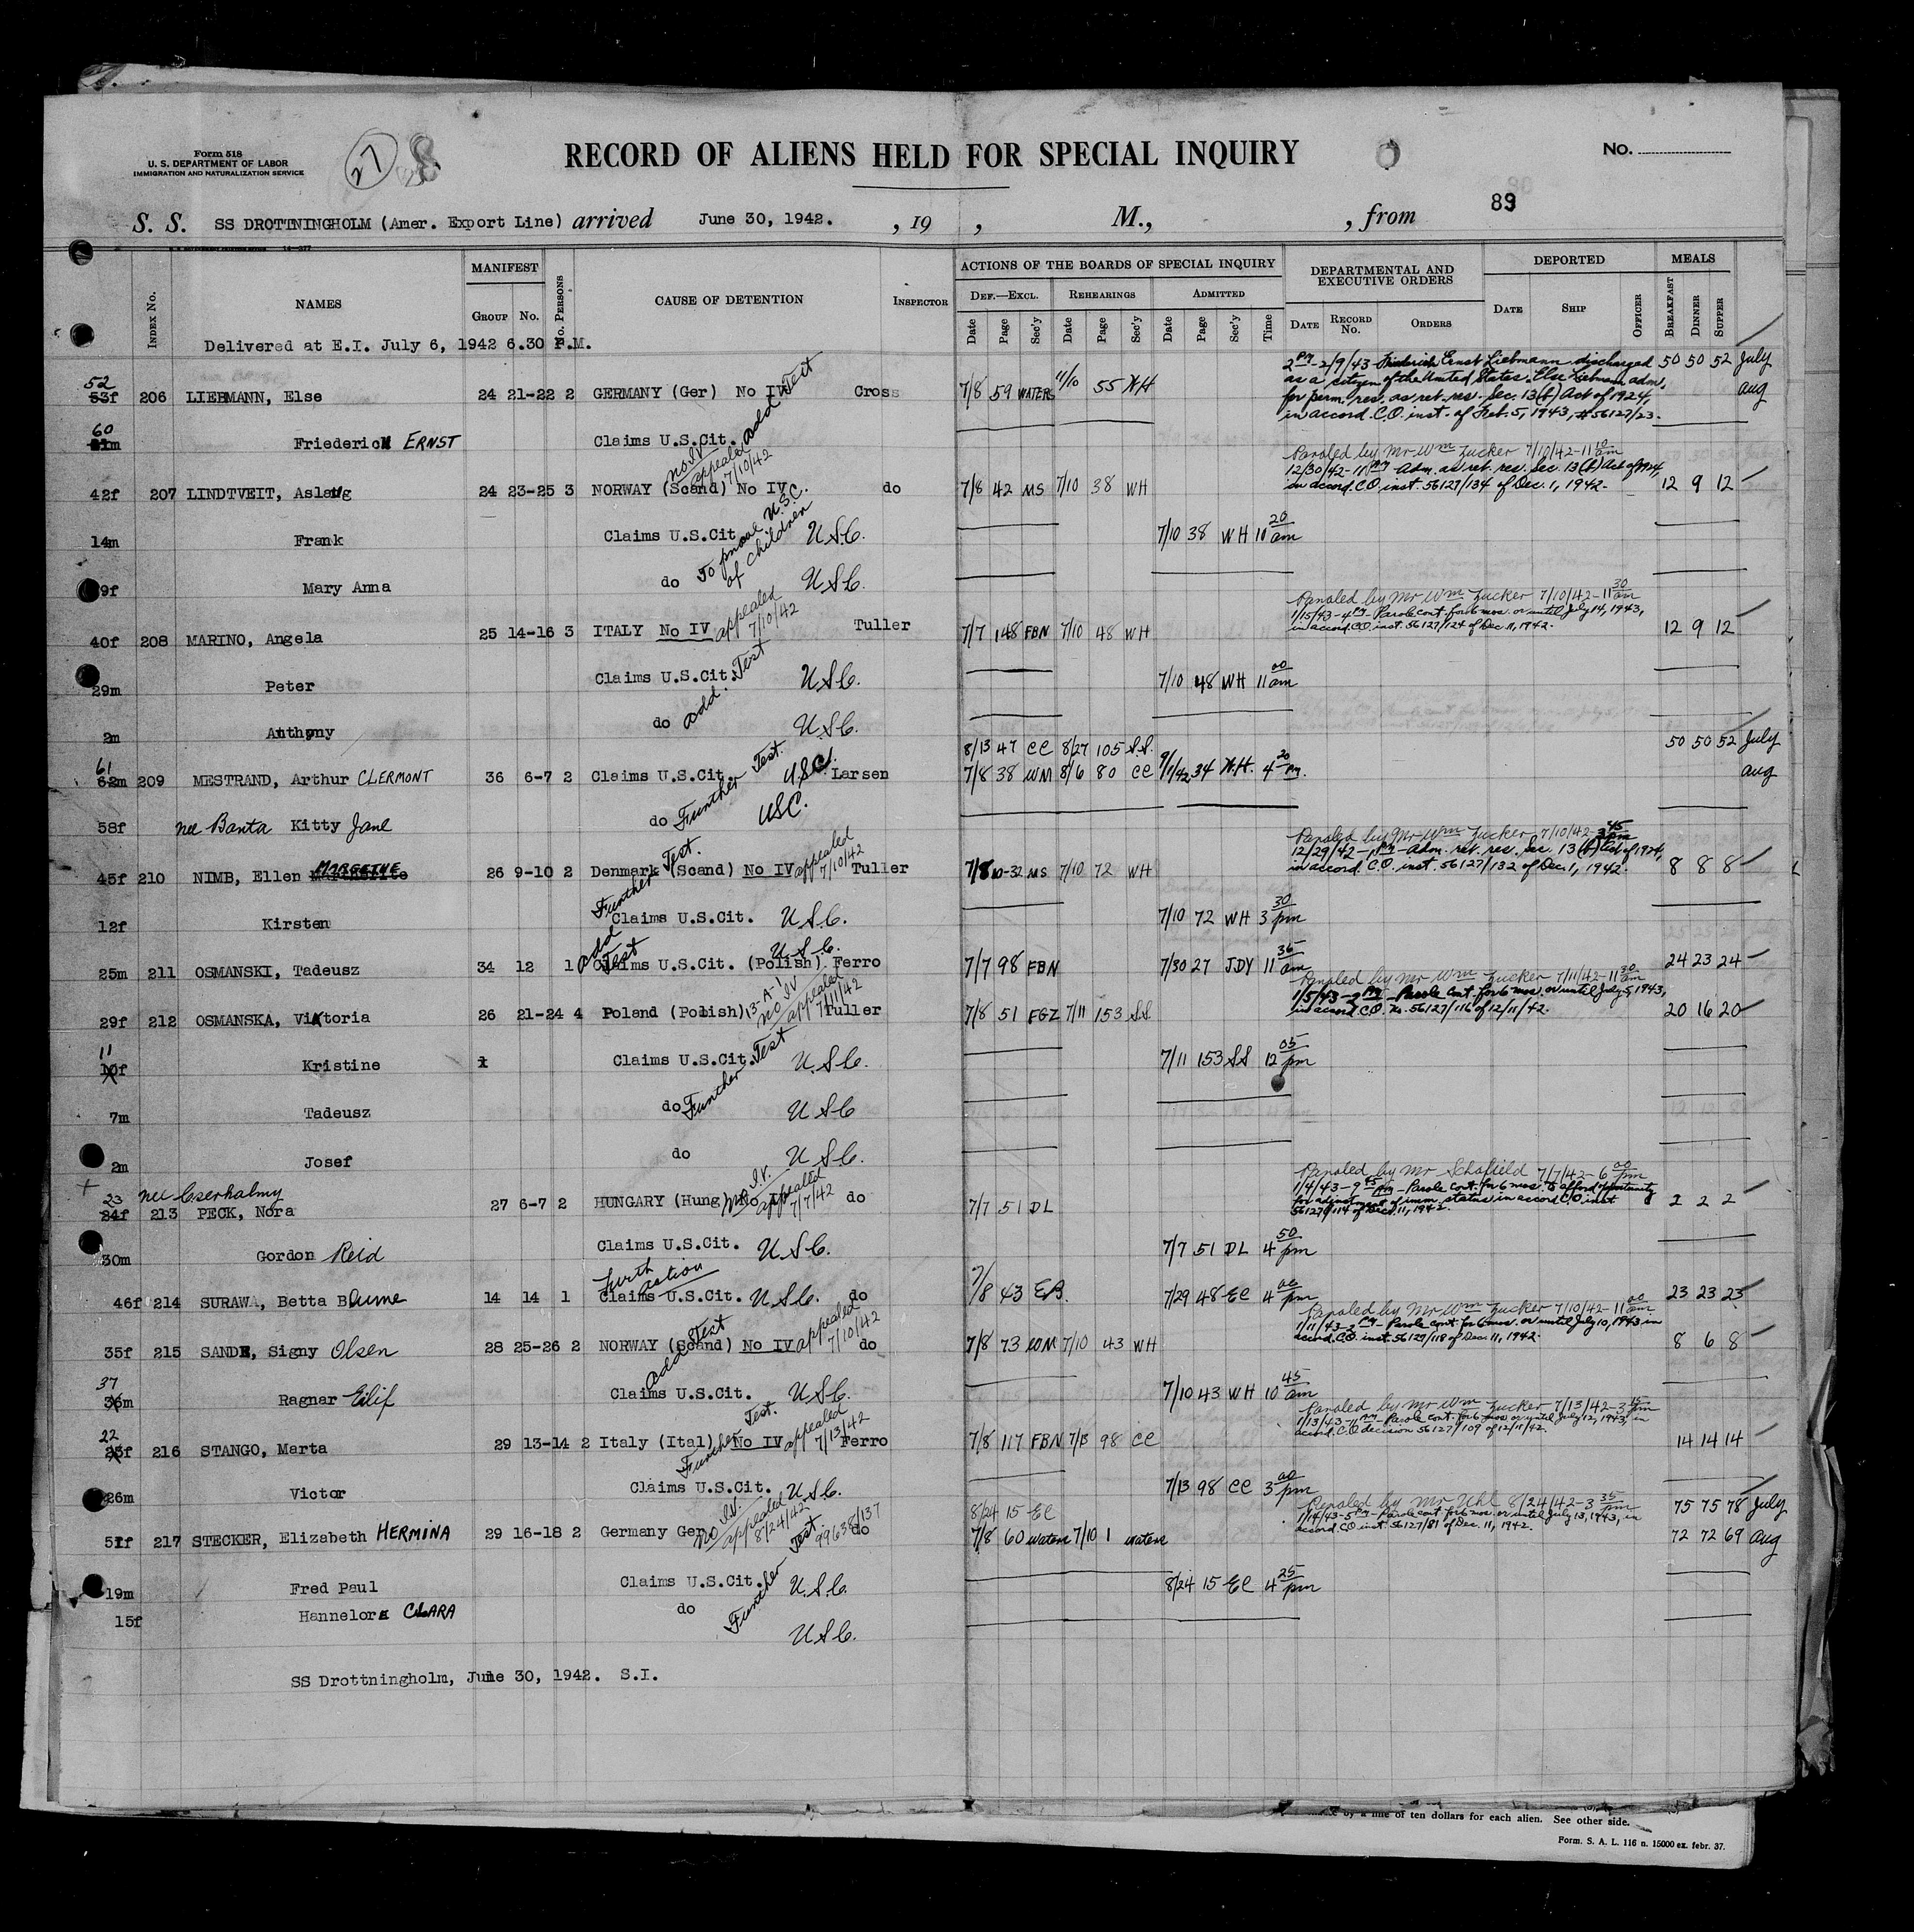 Form 518
U. S. DEPARTMENT OF LABOR
IMMIGRATION AND NATURALIZATION SERVICE
27
RECORD OF ALIENS HELD FOR SPECIAL INQUIRY
No.
S. S. SS DROTTNINGHOLM (Amer. Export Line) arrived June 30, 1942. , 19 , M., , from
89
NAMES
Index No.
MANIFEST
Group No.
No. Persons
CAUSE OF DETENTION
Inspector
ACTIONS OF THE BOARDS OF SPECIAL INQUIRY
Def.—Excl. Rehearings Admitted
Date Page Sec'y Date Page Sec'y Date Page Sec'y Time
DEPARTMENTAL AND EXECUTIVE ORDERS
Date Record No. Orders
DEPORTED
Date Ship Officer
MEALS
Breakfast Dinner Supper
Delivered at E.I. July 6, 1942 6.30 P.M.
52 53f 206 LIEBMANN, Else 24 21-22 2 GERMANY (Ger) No IV add Test Cross 7/8 59 WATERS 11/10 55 WH 50 50 52 July aug
2 PM - 2/9/43 Friederich Ernst Liebmann discharged
as a citizen of the United States. Else Liebmann adm.
for perm. res. as ret. res. Sec. 13(b) Act of 1924,
in accord. C.O. inst. of Feb. 5, 1943, #56127/23.
60 Friederich ERNST Claims U.S.Cit.
42f 207 LINDTVEIT, Aslaug 24 23-25 3 NORWAY (Scand) No IV. No IV appealed 7/10/42 do 7/8 42 MS 7/10 38 WH 12 9 12
Paroled by Mr Wm Zucker 7/10/42-11 10 am
12/30/42-11 PM - Adm. as ret. res. Sec. 13(b) Act of 1924,
in accord. C.O. inst. 56127/134 of Dec. 1, 1942.
14m Frank Claims U.S.Cit. To prove U.S.C. of children U.S.C. 7/10 38 WH 10 20 am
9f Mary Anna do U.S.C.
40f 208 MARINO, Angela 25 14-16 3 ITALY No IV appealed 7/10/42 Tuller 7/7 148 FBN 7/10 48 WH 12 9 12
Paroled by Mr Wm Zucker 7/10/42-11 30 am
1/15/43-4 PM - Parole cont. for 6 mos. or until July 14, 1943,
in accord. C.O. inst. 56127/124 of Dec. 11, 1942.
29m Peter Claims U.S.Cit. add. Test U.S.C. 7/10 48 WH 11 00 am
2m Anthony do U.S.C.
8/13 47 CC 8/27 105 S.S. 50 50 52 July
61 62m 209 MESTRAND, Arthur CLERMONT 36 6-7 2 Claims U.S.Cit. Further Test. USC. Larsen 7/8 38 WM 8/6 80 CC 9/1/42 34 W.H. 4 20 PM. aug
58f nee Banta Kitty Jane do USC.
45f 210 NIMB, Ellen MARGETHE 26 9-10 2 Denmark (Scand) No IV appealed 7/10/42 Tuller 7/8 10-32 MS 7/10 72 WH 8 8 8
Paroled by Mr Wm Zucker 7/10/42-3 45 pm
12/29/42-1 PM - Adm. ret. res. Sec. 13(b) Act of 1924,
in accord. C.O. inst. 56127/132 of Dec. 1, 1942.
12f Kirsten Further Test. Claims U.S.Cit. U.S.C. 7/10 72 WH 3 30 pm
25m 211 OSMANSKI, Tadeusz 34 12 1 add Test Claims U.S.Cit. (Polish) U.S.C. Ferro 7/7 98 FBN 7/30 27 JDY 11 36 am 24 23 24
29f 212 OSMANSKA, Viktoria 26 21-24 4 Poland (Polish) 13-A-1 No IV appealed 7/11/42 Tuller 7/8 51 FGZ 7/11 153 SS 20 16 20
Paroled by Mr Wm Zucker 7/11/42-11 30 am
1/5/43-2 PM - Parole cont. for 6 mos. or until July 5, 1943,
in accord. C.O. No. 56127/116 of 12/11/42.
11 10f Kristine 1 Claims U.S.Cit. Further Test U.S.C. 7/11 153 SS 12 05 pm
7m Tadeusz do U.S.C
2m Josef do U.S.C.
23 24f 213 nee Cserhalmy PECK, Nora 27 6-7 2 HUNGARY (Hung) No IV No I.V. appealed 7/7/42 do 7/7 51 DL 2 2 2
Paroled by Mr Schofield 7/7/42-6 00 pm
1/4/43-9 45 PM - Parole cont. for 6 mos. to afford opportunity
for adjustment of imm. status in accord C.O. inst
56127/114 of Dec. 11, 1942.
30m Gordon Reid Claims U.S.Cit. U.S.C. 7/7 51 DL 4 50 pm
46f 214 SURAWA, Betta Blume 14 14 1 furth action Claims U.S.Cit. U.S.C. do 7/8 43 EB. 7/29 48 EC 4 00 pm 23 23 23
35f 215 SANDE, Signy Olsen 28 25-26 2 NORWAY (Scand) No IV appealed 7/10/42 do 7/8 73 WM 7/10 43 WH 8 6 8
Paroled by Mr Wm Zucker 7/10/42-11 00 am
1/11/43-2 PM - Parole cont. for 6 mos. or until July 10, 1943 in
accord. C.O. inst. 56127/118 of Dec. 11, 1942.
37 36m Ragnar Eilif add Test Claims U.S.Cit. U.S.C. 7/10 43 WH 10 45 am
22 216 STANGO, Marta 29 13-14 2 Italy (Ital) No IV appealed 7/13/42 Ferro 7/8 117 FBN 7/13 98 CC 14 14 14
Paroled by Mr Wm Zucker 7/13/42-3 15 pm
1/13/43-11 AM - Parole cont. for 6 mos or until July 12, 1943, in
accord. C.O. decision 56127/109 of 12/11/42.
26m Victor Further Test. Claims U.S.Cit. U.S.C. 7/13 98 CC 3 00 pm
8/24 15 EC 75 75 78 July
51f 217 STECKER, Elizabeth HERMINA 29 16-18 2 Germany Ger No I.V. appealed 8/24/42 99638/137 do 7/8 60 Waters 7/10 1 Waters 72 72 69 Aug
Paroled by Mr Uhl 8/24/42-3 35 pm
1/14/43-5 PM - Parole cont. for 6 mos. or until July 13, 1943, in
accord. C.O. inst. 56127/81 of Dec. 11, 1942.
19m Fred Paul Claims U.S.Cit. Further Test U.S.C. 8/24 15 EC 4 25 pm
15f Hannelore CLARA do U.S.C.
SS Drottningholm, June 30, 1942. S.I.
by a fine of ten dollars for each alien. See other side.
Form. S. A. L. 116 n. 15000 ex. febr. 37.